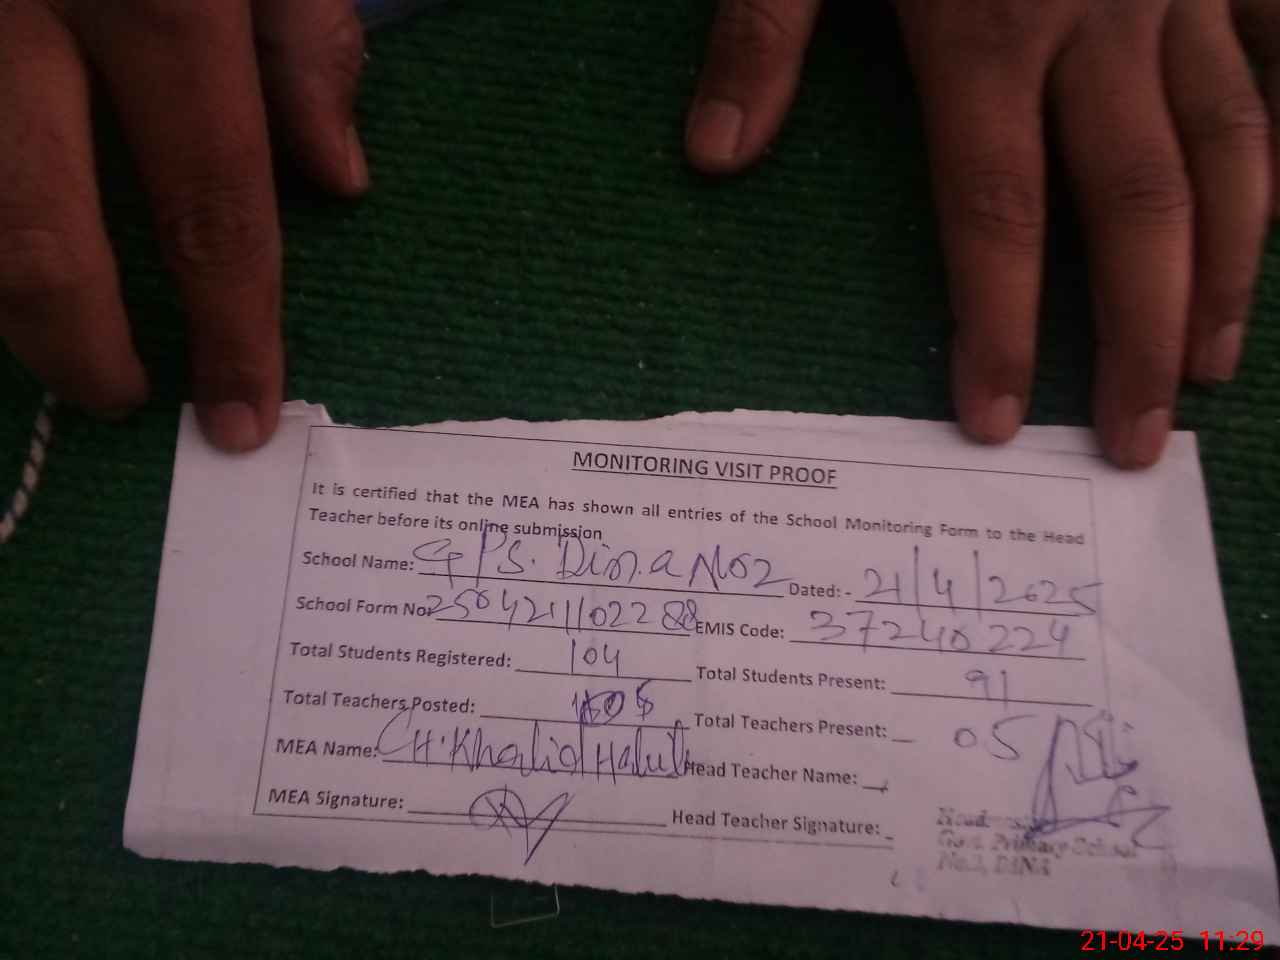 MONITORING VISIT PROOF
It is certified that the MEA has shown all entries of the School Monitoring Form to the Head
Teacher before its online submission
School Name: GPS. Dina No2 Dated: - 21/4/2025
School Form No: 25042111022 88 EMIS Code: 37240224
Total Students Registered: 104 Total Students Present: 91
Total Teachers Posted: 05 Total Teachers Present: 05
MEA Name: CH. Khalid Head Teacher Name:
MEA Signature: Head Teacher Signature:
Govt. Primary School
DINA
21-04-25 11:29